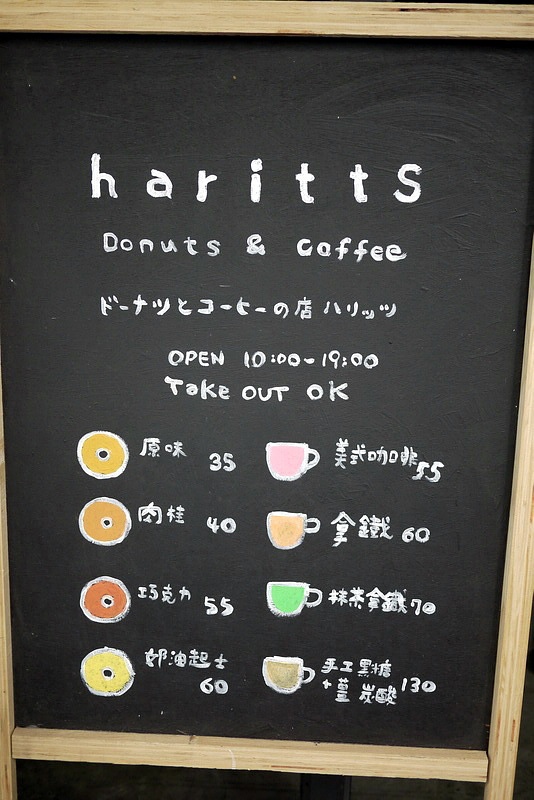 haritts
Donuts & coffee
ドーナツとコーヒーの店 ハリッツ
OPEN 10:00-19:00
Take OUT OK
原味 35
美式咖啡 55
肉桂 40
拿鐵 60
巧克力 55
抹茶拿鐵 70
奶油起士 60
手工黑糖
+薑 炭酸 130